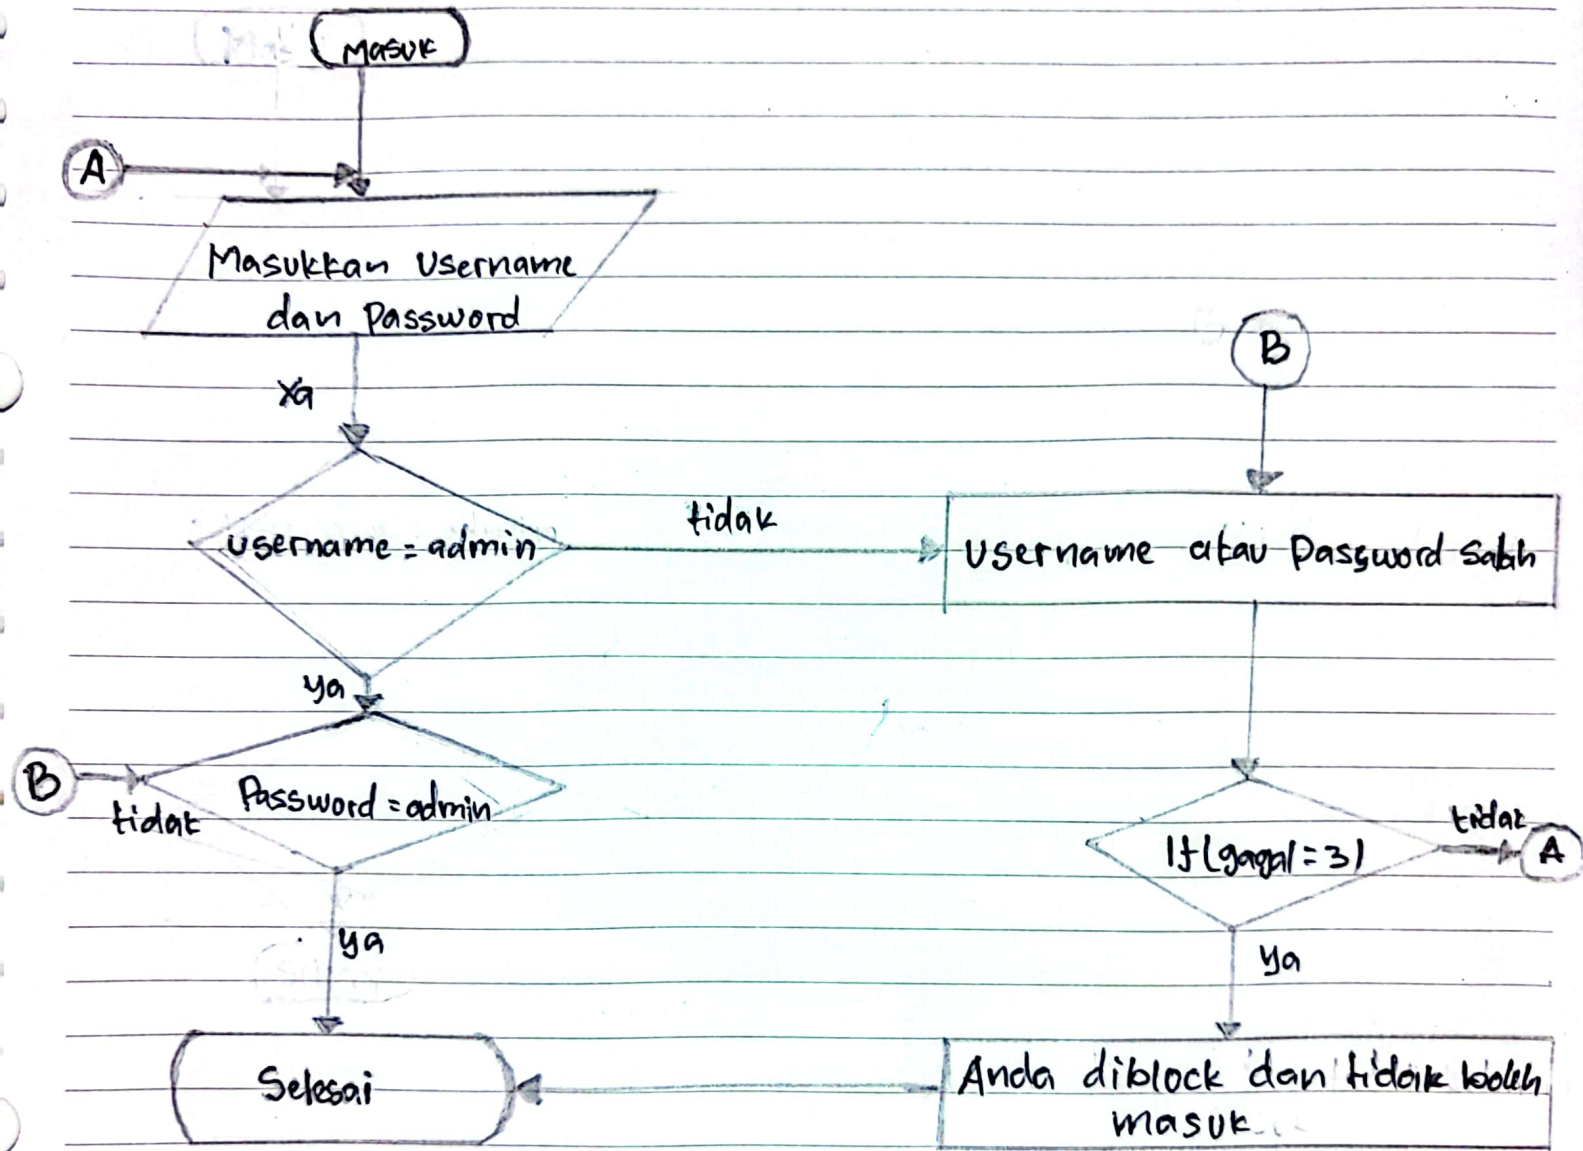 Masuk
A
Masukkan Username
dan Password
Ya
B
username = admin
tidak
Username atau Password Salah
ya
B
tidak
Password = admin
If (gagal = 3)
tidak
A
ya
ya
Selesai
Anda diblock dan tidak boleh
masuk